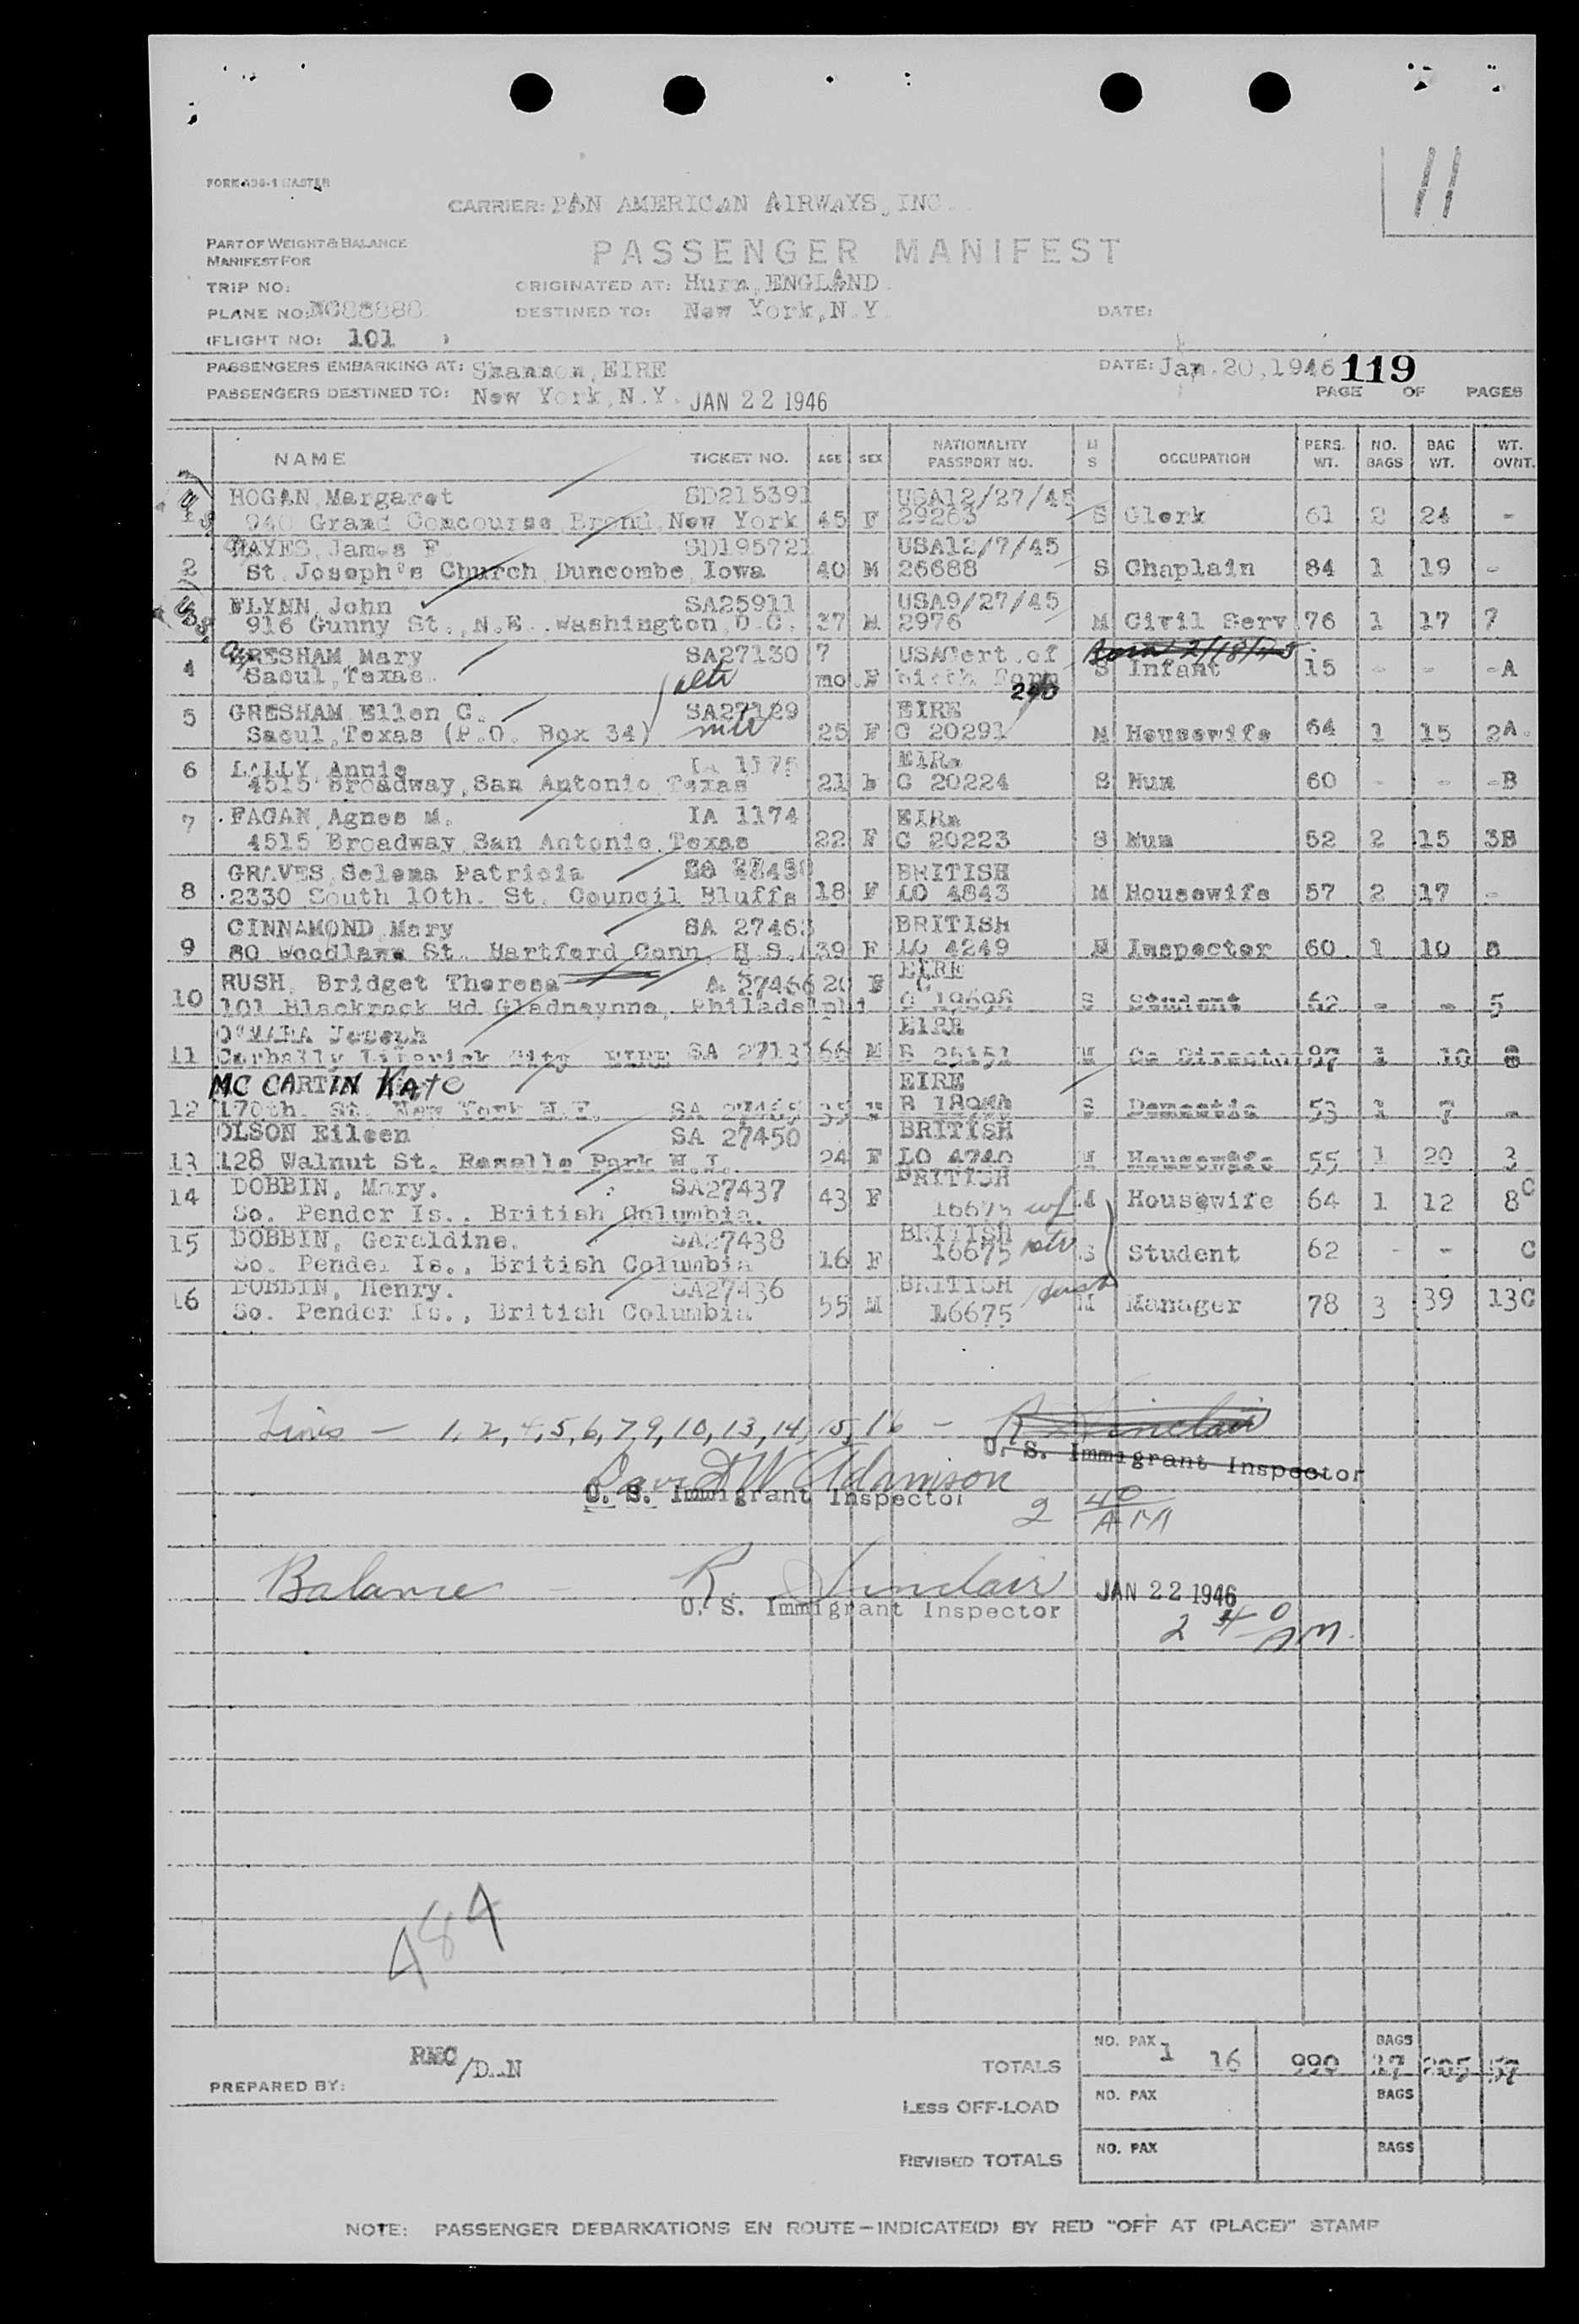 11
FORM 436-1 MASTER
CARRIER: PAN AMERICAN AIRWAYS, INC.
PART OF WEIGHT & BALANCE
MANIFEST FOR
PASSENGER MANIFEST
TRIP NO:
ORIGINATED AT: Hurn, ENGLAND.
PLANE NO: NC88888
DESTINED TO: New York, N.Y.
DATE:
(FLIGHT NO: 101 )
PASSENGERS EMBARKING AT: Shannon, EIRE
DATE: Jan. 20, 1946 119
PASSENGERS DESTINED TO: New York, N.Y. JAN 22 1946
PAGE OF PAGES
NAME TICKET NO. AGE SEX NATIONALITY PASSPORT NO. M S OCCUPATION PERS. WT. NO. BAGS BAG WT. WT. OVNT.
HOGAN, Margaret SD215391 USA12/27/45
1 940 Grand Concourse, Bronx, New York 45 F 29263 S Clerk 61 2 24 -
HAYES, James F. SD195721 USA12/7/45
2 St. Joseph's Church Duncombe, Iowa 40 M 26688 S Chaplain 84 1 19 -
FLYNN, John SA25911 USA9/27/45
916 Gunny St., N.E. Washington, D.C. 37 M 2976 M Civil Serv 76 1 17 7
GRESHAM Mary SA27130 7 USACert. of Born 2/18/45
4 Sacul, Texas. mo F birth Form 240 S Infant 15 - - -A
5 GRESHAM Ellen C. SA27129 EIRE
Sacul, Texas (P.O. Box 34) 25 F C 20291 M Housewife 64 1 15 2A.
6 LALLY, Annie IA 1175 EIRe
4515 Broadway, San Antonio Texas 21 C 20224 S Nun 60 - - -B
7 FAGAN, Agnes M. IA 1174 EIRe
4515 Broadway, San Antonio, Texas 22 F C 20223 S Nun 52 2 15 3B
GRAVES, Selema Patricia BRITISH
8 2330 South 10th. St. Council Bluffs 18 F LO 4843 M Housewife 57 2 17 -
CINNAMOND, Mary SA 27463 BRITISH
9 80 Woodlawn St. Hartford Conn, 39 F LO 4249 M Inspector 60 1 10 8
RUSH, Bridget Theresa 27466 20 F EIRE
10 101 Blackrock Rd. Gladnaynne, Philadelphi C 19698 S Student 62 - - 5
O'MARA Joseph EIRE
11 Carbally Limerick City EIRE SA 2713 66 M R 25151 M Co Director 97 1 10 8
MC CARTIN KATE EIRE
12 170th. St. New York N.Y. SA 27465 35 F S Domestic 53 1 7 -
OLSON Eileen SA 27450 BRITISH
13 128 Walnut St. Roselle Park N.J. 24 F LO 4740 M Housewife 55 1 20 3
14 DOBBIN, Mary. SA27437 BRITISH
So. Pender Is., British Columbia. 43 F 16675 wf M Housewife 64 1 12 8C
15 DOBBIN, Geraldine. SA27438 BRITISH
So. Pender Is., British Columbia 16 F 16675 S Student 62 - - C
16 DOBBIN, Henry. SA27436 BRITISH
So. Pender Is., British Columbia 55 M 16675 M Manager 78 3 39 13C
Lines - 1, 2, 4, 5, 6, 7, 9, 10, 13, 14, 15, 16 - R Sinclair
U. S. Immigrant Inspector
David W Adamson
U. S. Immigrant Inspector
2 40 AM
Balance - R. Sinclair JAN 22 1946
U. S. Immigrant Inspector
2 40 AM.
484
RMC/D.N
PREPARED BY:
TOTALS NO. PAX 1 16 990 BAGS 17 205 57
LESS OFF-LOAD NO. PAX BAGS
REVISED TOTALS NO. PAX BAGS
NOTE: PASSENGER DEBARKATIONS EN ROUTE—INDICATE(D) BY RED "OFF AT (PLACE)" STAMP